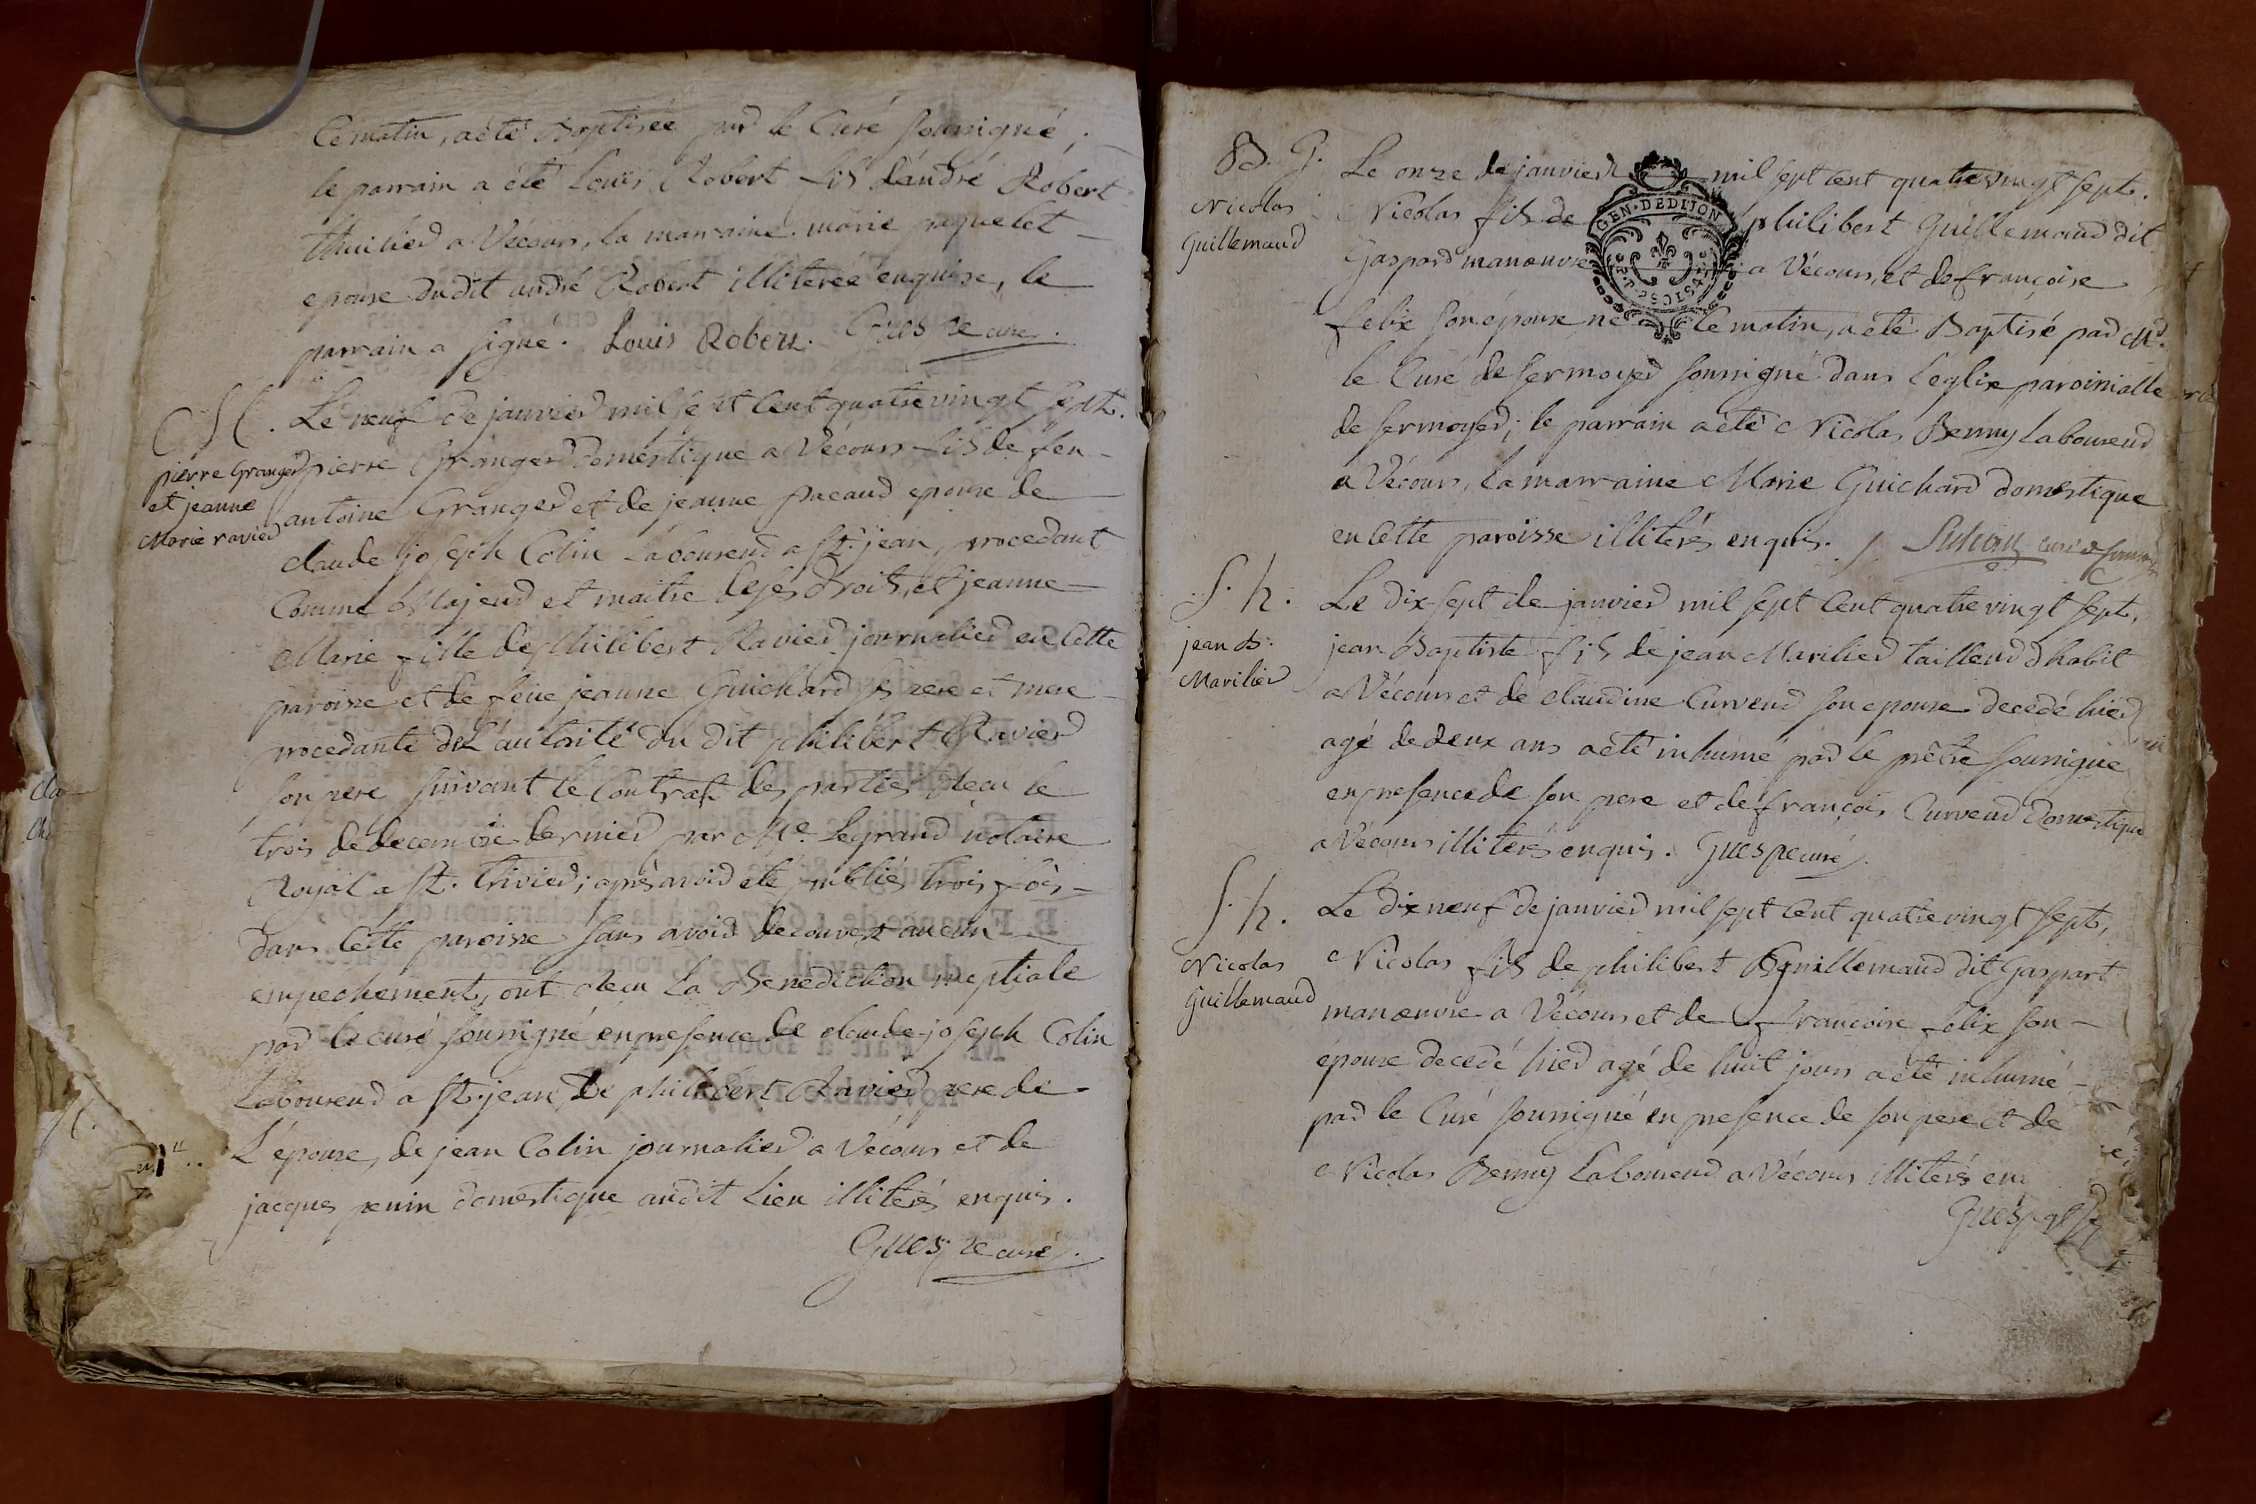 Ce matin, a été Baptisée par le Curé soussigné,
le parrain a été Louis Robert fils d'andré Robert
thuilier a Vécours, la marraine marie paquelet
epouse dudit andré Robert illiterée enquise, le
parrain a signé. Louis Robert. Guespe curé.
M.
pierre Granger
et jeanne
Marie ravier
Le neuf de janvier mil sept cent quatre vingt sept.
pierre Granger domestique a Vécours fils de feu
antoine Granger et de jeanne pacaud epouse de
claude joseph Colin Laboureur a St. jean, procedant
Comme Majeur et maitre de ses droits, et jeanne
Marie fille de philibert Ravier journalier en Cette
paroisse et de feue jeanne Guichard ses pere et mere
procedante de l'autorité du dit philibert Ravier
son pere suivant le Contrast des parties Reçu le
trois de decembre dernier par Me. Legrand notaire
Royal a St. Trivier; après avoir été publiés trois fois
dans Cette paroisse sans avoir decouvert aucun
empechement, ont Reçu La Benediction nuptiale
par le curé soussigné en presence de claude joseph Colin
Laboureur a St. jean, De philibert Ravier pere de
L'épouse, de jean Colin journalier a Vécours et de
jacques penin domestique audit Lieu illiterés enquis.
Guespe curé.
B. G.
Nicolas
Guillemaud
Le onze de janvier mil sept cent quatre vingt sept.
Nicolas fils de philibert Guillemaud dit
GEN. DE DIJON
Gaspard manœuvre a Vécours, et de françoise
felix son épouse né Ce matin, a été Baptisé par Mr.
le Curé de sermoyer soussigné dans l'eglise paroissialle
de sermoyer; le parrain a été Nicolas Benny Laboureur
a Vécours, La marraine Marie Guichard domestique
en Cette paroisse illiterés enquis. curé de sermoyer
S. h.
jean B.
Marilier
Le dix-sept de janvier mil sept Cent quatre vingt sept,
jean Baptiste fils de jean Marilier tailleur d'habit
a Vécours et de claudine Curveur son epouse decedé hier
agé de deux ans a été inhumé par le prêtre soussigné
en presence de son pere et de françois Curveur Domestique
a Vécours illiterés enquis. Guespe curé.
S. h.
Nicolas
Guillemaud
Le dix neuf de janvier mil sept Cent quatre vingt sept,
Nicolas fils de philibert Guillemaud dit Gaspart
manœuvre a Vécours et de francoise felix son
épouse decedé hier agé de huit jours a été inhumé
par le Curé soussigné en presence de son pere et de
Nicolas Benny Laboureur a Vécours illiterés en